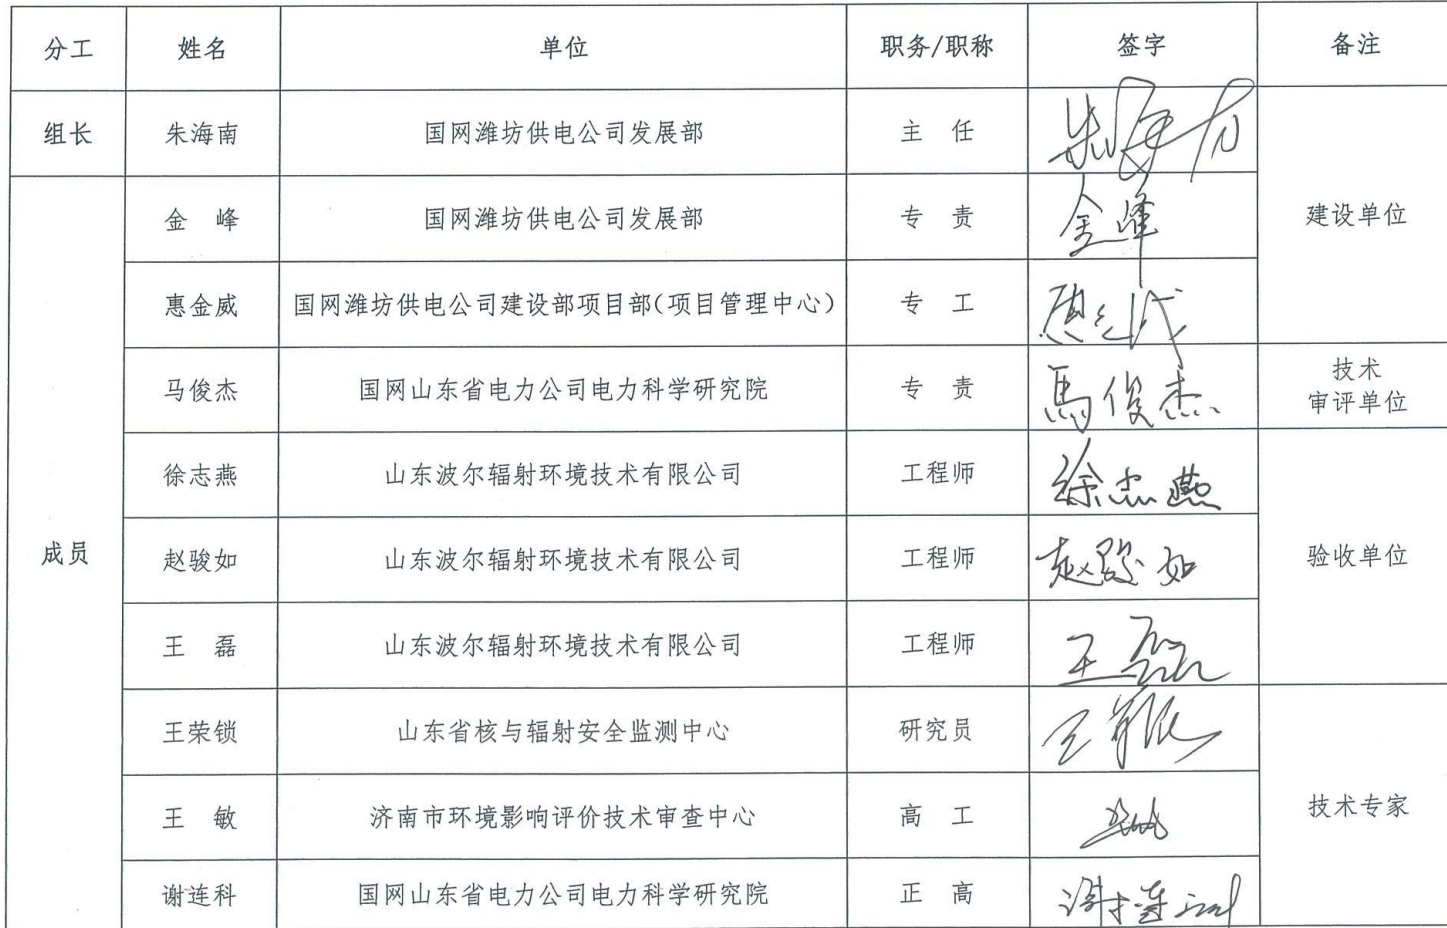 分工 姓名 单位 职务/职称 签字 备注
组长 朱海南 国网潍坊供电公司发展部 主 任 朱海南
金 峰 国网潍坊供电公司发展部 专 责 金峰 建设单位
惠金威 国网潍坊供电公司建设部项目部(项目管理中心) 专 工
马俊杰 国网山东省电力公司电力科学研究院 专 责 馬俊杰 技术
审评单位
徐志燕 山东波尔辐射环境技术有限公司 工程师 徐志燕
成员 赵骏如 山东波尔辐射环境技术有限公司 工程师 赵骏如 验收单位
王 磊 山东波尔辐射环境技术有限公司 工程师 王磊
王荣锁 山东省核与辐射安全监测中心 研究员
王 敏 济南市环境影响评价技术审查中心 高 工 技术专家
谢连科 国网山东省电力公司电力科学研究院 正 高 谢连科